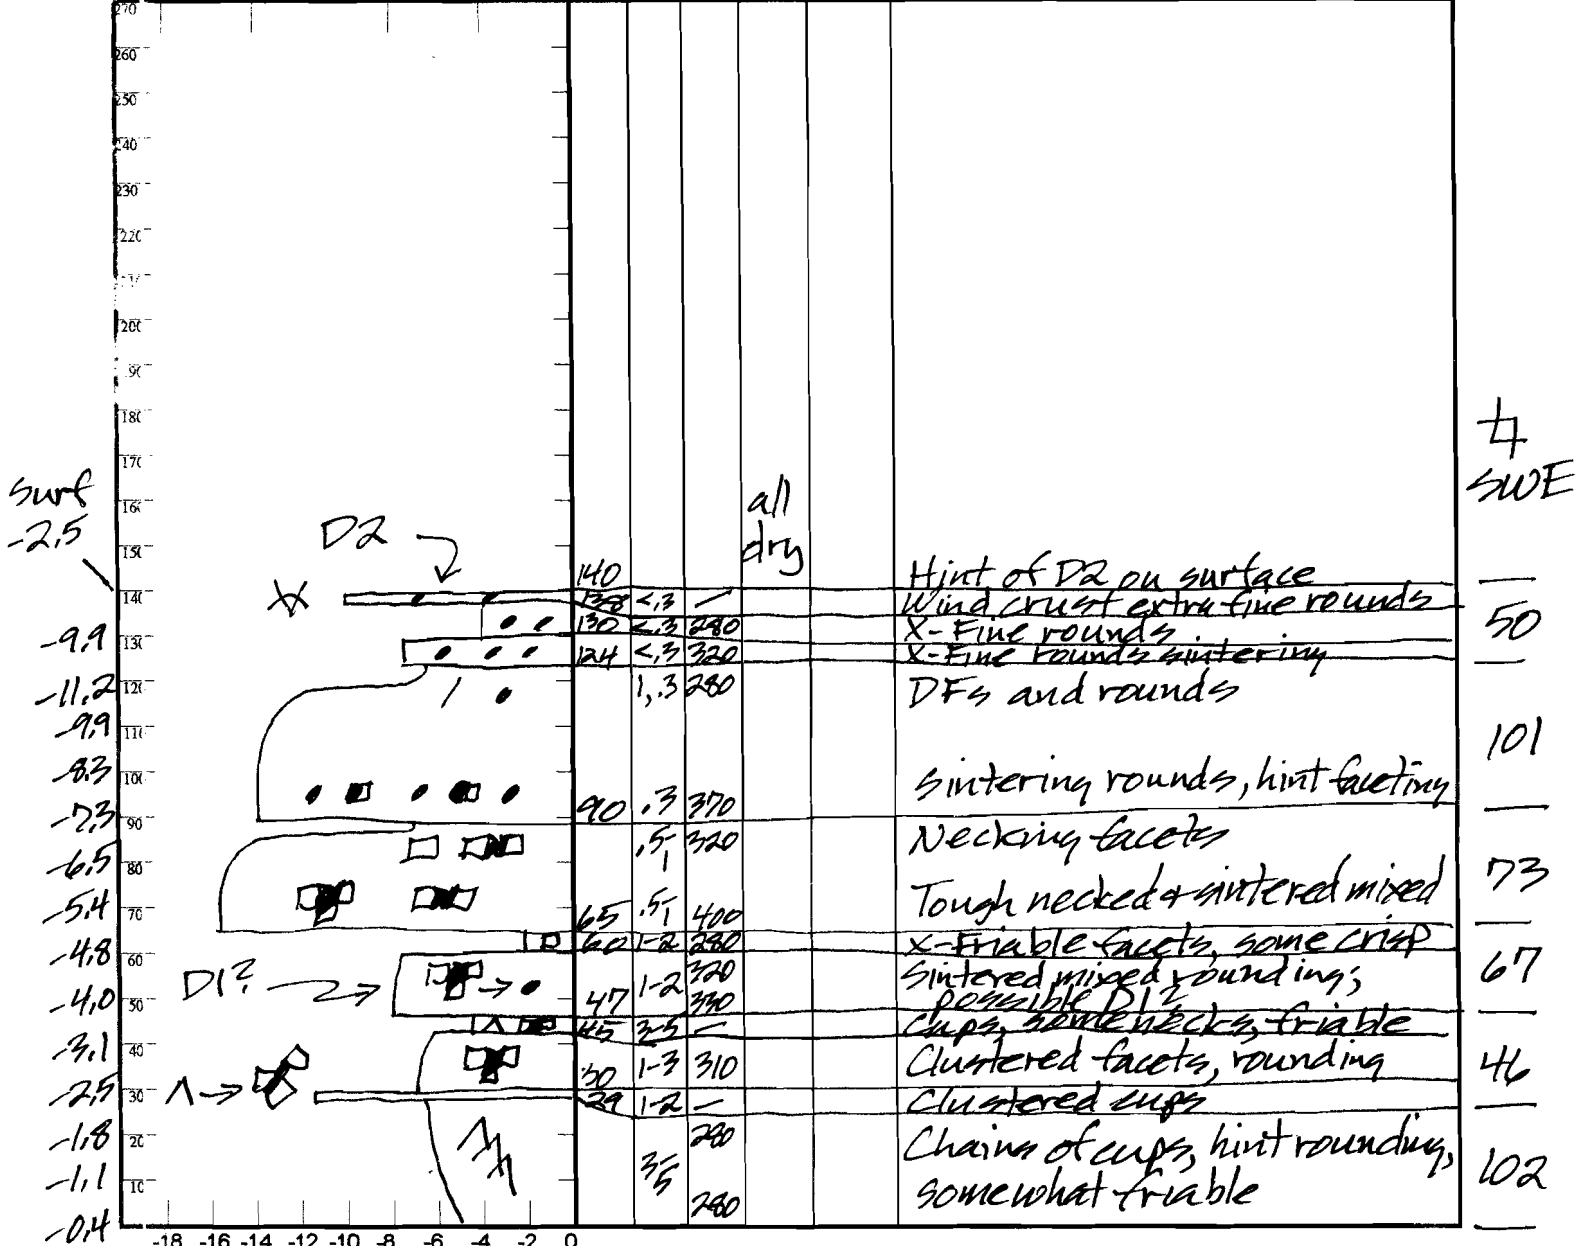 270
260
250
240
230
220
200
90
180
170
160
150
140
130
120
110
100
90
80
70
60
50
40
30
20
10
-18 -16 -14 -12 -10 -8 -6 -4 -2 0
Surf
-2.5
-9.9
-11.2
-9.9
-8.3
-7.3
-6.5
-5.4
-4.8
-4.0
-3.1
-2.5
-1.8
-1.1
-0.4
D2
D1?
all
dry
SWE
140 Hint of D2 on surface
138 <.3 – Wind crust extra fine rounds
130 <.3 280 X-Fine rounds
124 <.3 320 X-Fine rounds sintering
1, .3 280 DFs and rounds
90 .3 370 Sintering rounds, hint faceting
.5-1 320 Necking facets
65 .5-1 400 Tough necked & sintered mixed
60 1-2 280 X-Friable facets, some crisp
47 1-2 320 330 Sintered mixed rounding;
possible D1?
45 3-5 – Cups, some necks, friable
30 1-3 310 Clustered facets, rounding
29 1-2 – Clustered cups
3-5 280 Chains of cups, hint rounding,
280 somewhat friable
50
101
73
67
46
102